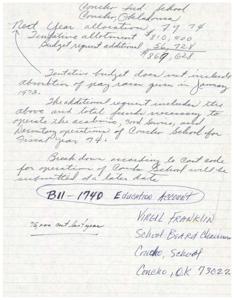 Concho Ind. School
Concho Oklahoma
Next Year allocations FY 74
Tentative allotment $810,900
Budget request additional 56,728
$867,628
Tentative budget does not include
absorbtion of pay raise given in January
1973.
The additional request includes the
above and total funds necessary to
operate the academic, food service, and
Dormitory operations of Concho School for
Fiscal year 74.
Break down according to cost code
for operations of Concho School will be
submitted at a later date.
B11-1740 Education Account
Virgil Franklin
School Board Chairman
Concho, School
Concho, OK 73022